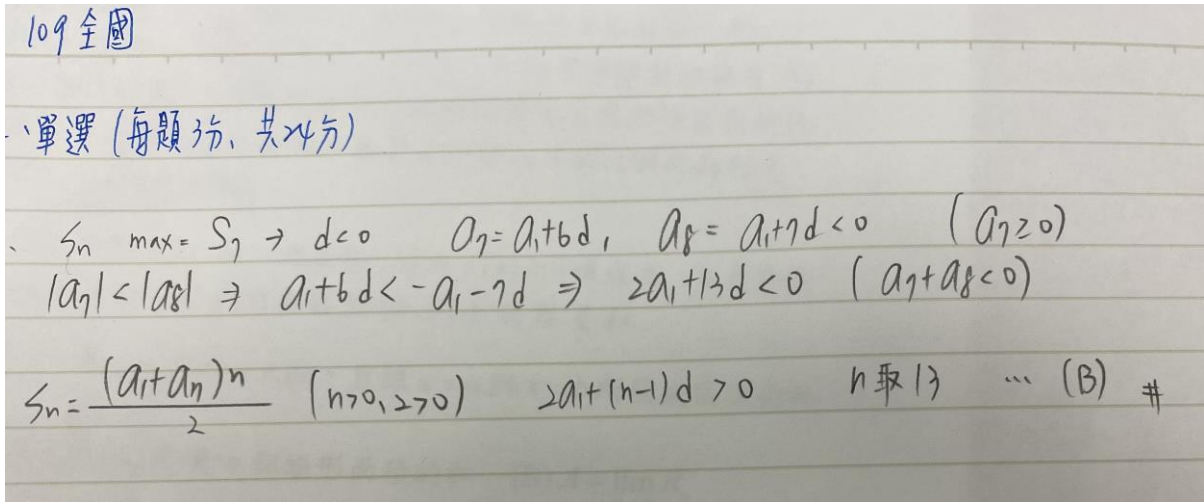 109全國
一、單選(每題3分、共24分)
、 Sn max = S7 → d<0 a7=a1+6d, a8=a1+7d<0 (a7≥0)
|a7|<|a8| ⇒ a1+6d<-a1-7d ⇒ 2a1+13d<0 (a7+a8<0)
Sn=(a1+an)n/2 (n>0, 2>0) 2a1+(n-1)d>0 n取13 … (B) #